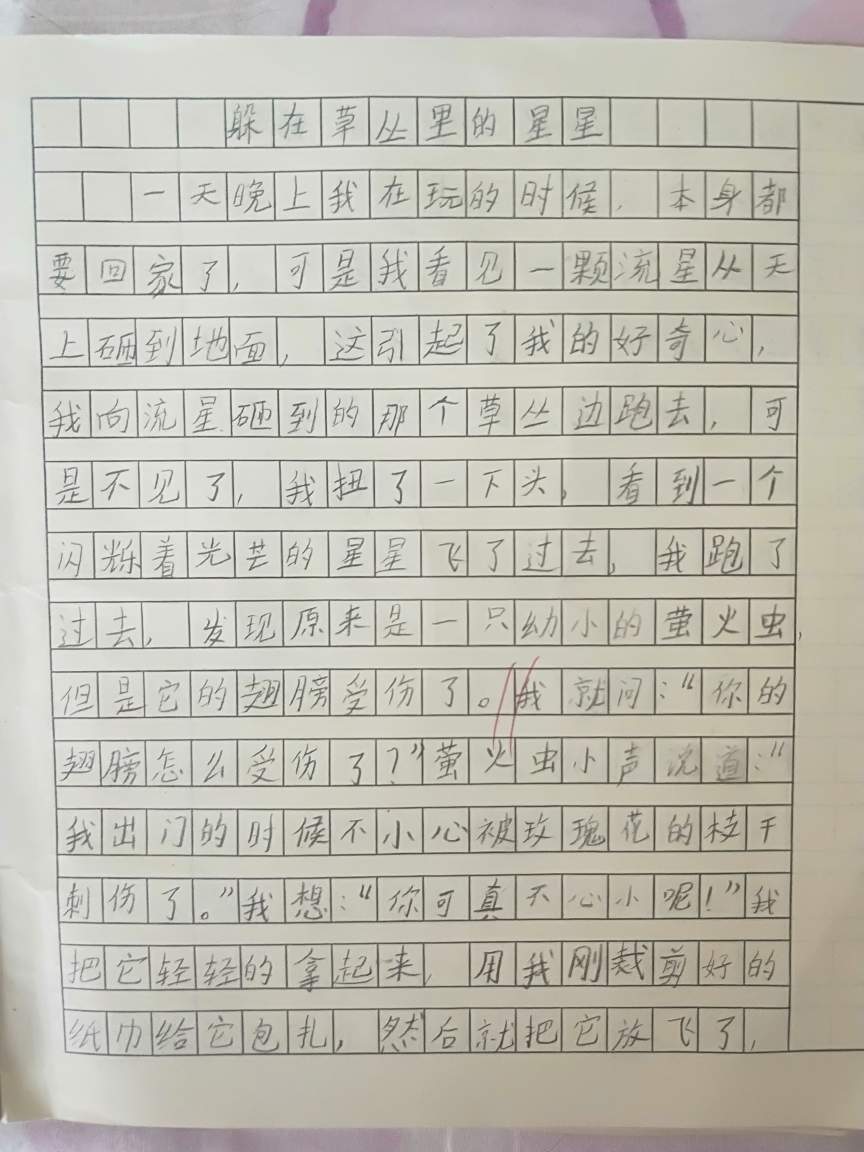 躲在草丛里的星星
一天晚上我在玩的时候，本身都
要回家了，可是我看见一颗流星从天
上砸到地面，这引起了我的好奇心，
我向流星砸到的那个草丛边跑去，可
是不见了，我扭了一下头，看到一个
闪烁着光芒的星星飞了过去，我跑了
过去，发现原来是一只幼小的萤火虫，
但是它的翅膀受伤了。我就问：“你的
翅膀怎么受伤了？”萤火虫小声说道：“
我出门的时候不小心被玫瑰花的枝干
刺伤了。”我想：“你可真不心小呢！”我
把它轻轻的拿起来，用我刚裁剪好的
纸巾给它包扎，然后就把它放飞了，